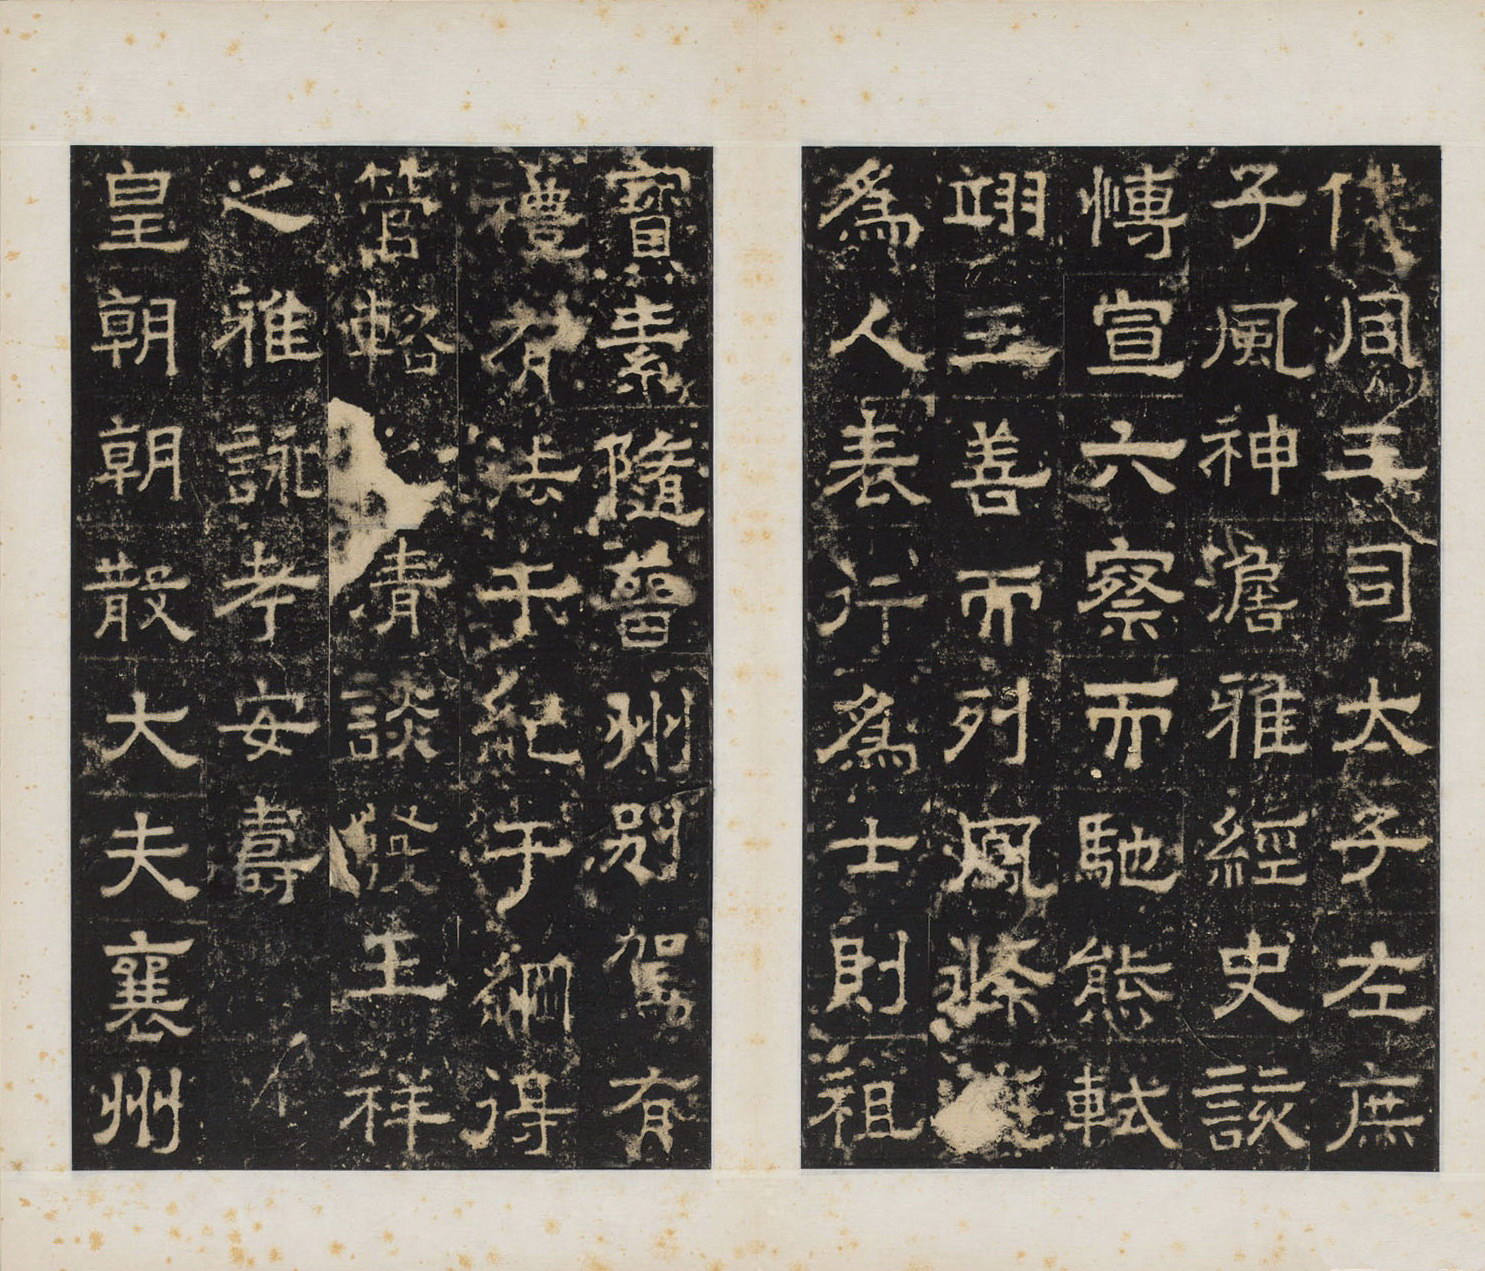 儀同三司太子左庶
子風神澹雅經史該
愽宣六察而馳熊軾
翊三善而列鳳
為人表行為士則祖
寶素隨晉州別駕有
禮有法于紀于綱得
管輅清談發王祥
之雅詠考安壽
皇朝朝散大夫襄州